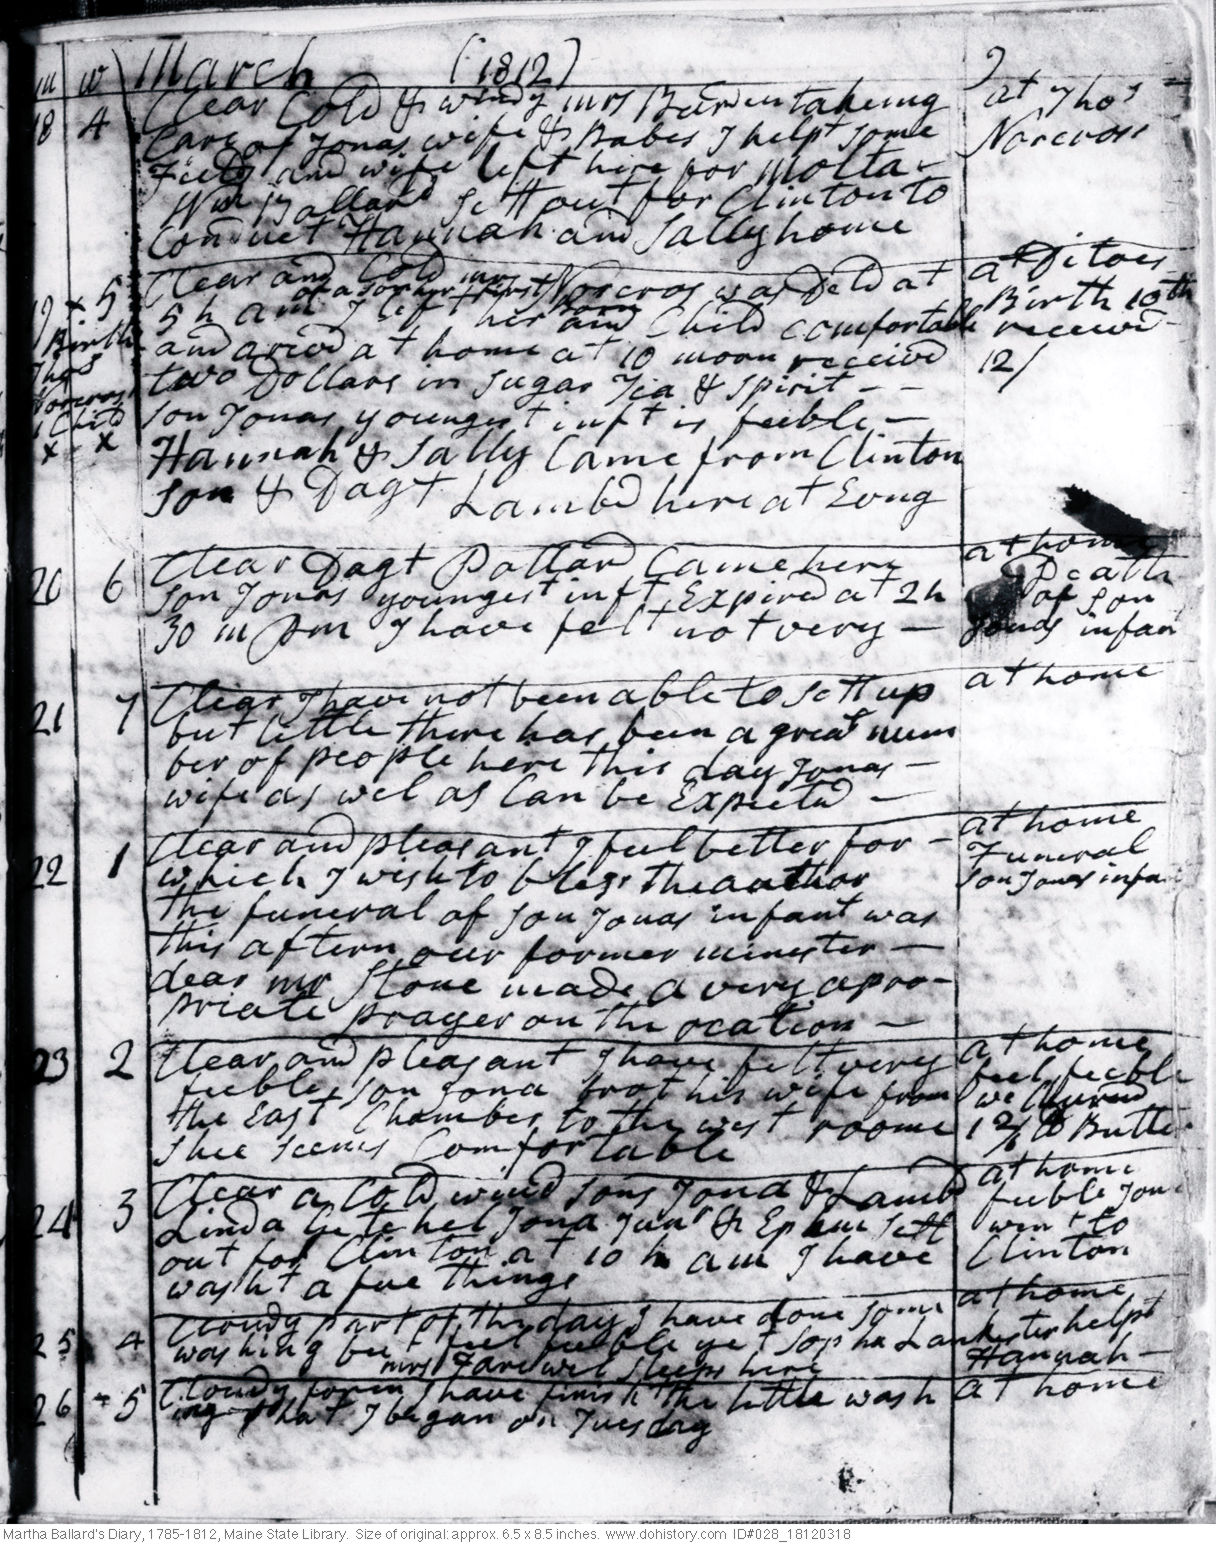 m w March (1812) 2
18 4 Clear Cold & windy mrs Burden takeing at Thos
Care of Jonas wife & Babes I helpt some Norcross
and wife left here for Molta-
Wm Ballard Sett out for Clinton to
Conduct Hannah and Sally home
19 x 5 Clear and Cold mrs Norcros was Deld at at Ditoes
of a son her first Born
5 h am I left her and Child comfortable Birth 10th
Birth and arivd at home at 10 morn received receivd
Thos two Dollars in sugar Tea & Spirit - - 12/
Norcross son Jonas youngest inft is feeble -
1 Child Hannah & Sally Came from Clinton
x x son & Dagt Lambd here at Evng
20 6 Clear Dagt Pollard Came here at home
son Jonas youngest inft Expired at 2 h Death
30 m pm I have felt not very - of son
Jonas infan
21 7 Clear I have not been able to sett up at home
but little there has been a great num
ber of people here this day Jonas -
wife as wel as Can be Expectd -
22 1 Clear and pleasant I feel better for - at home
which I wish to bless the author Funeral
the funeral of son Jonas infant was son Jonas infan
this aftern our former minester -
dear mr Stone made a very apro-
priate prayer on the ocation -
23 2 Clear and pleasant I have felt very at home
feeble son Jona brot his wife from feel feeble
the East Chamber to the west roome we
shee seems Comfortable Butte
24 3 Clear a Cold wind sons Jona & Lambd at home
Linda Getchel Jona Junr & Ephm sett feeble Jona
out for Clinton at 10 h am I have went to
washt a fue things Clinton
25 4 Cloudy part of the day I have done some at home
washing but feel feeble yet Sopha Lankester helpt
mrs Farewel sleeps here Hannah -
26 - 5 Cloudy foren I have finisht the little wash at home
ing that I began on Tuesday
Martha Ballard's Diary, 1785-1812, Maine State Library. Size of original: approx. 6.5 x 8.5 inches. www.dohistory.com ID#028_18120318